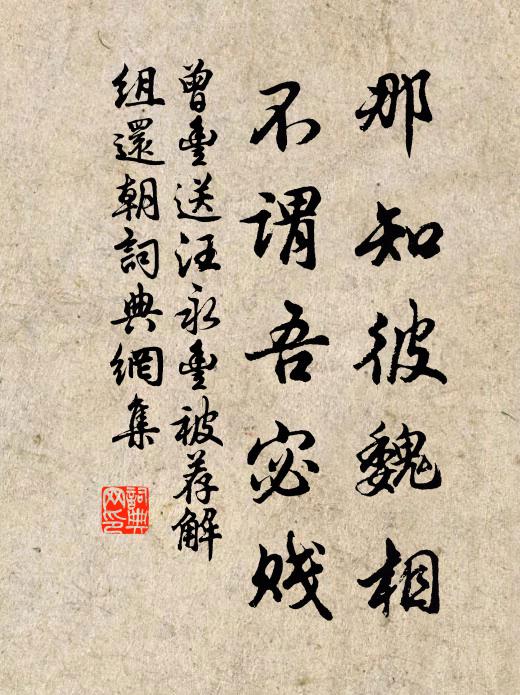 那知彼魏相
不谓吾宓贱
曾丰送汪永丰被荐解
组还朝詞典網集
詞典
网印